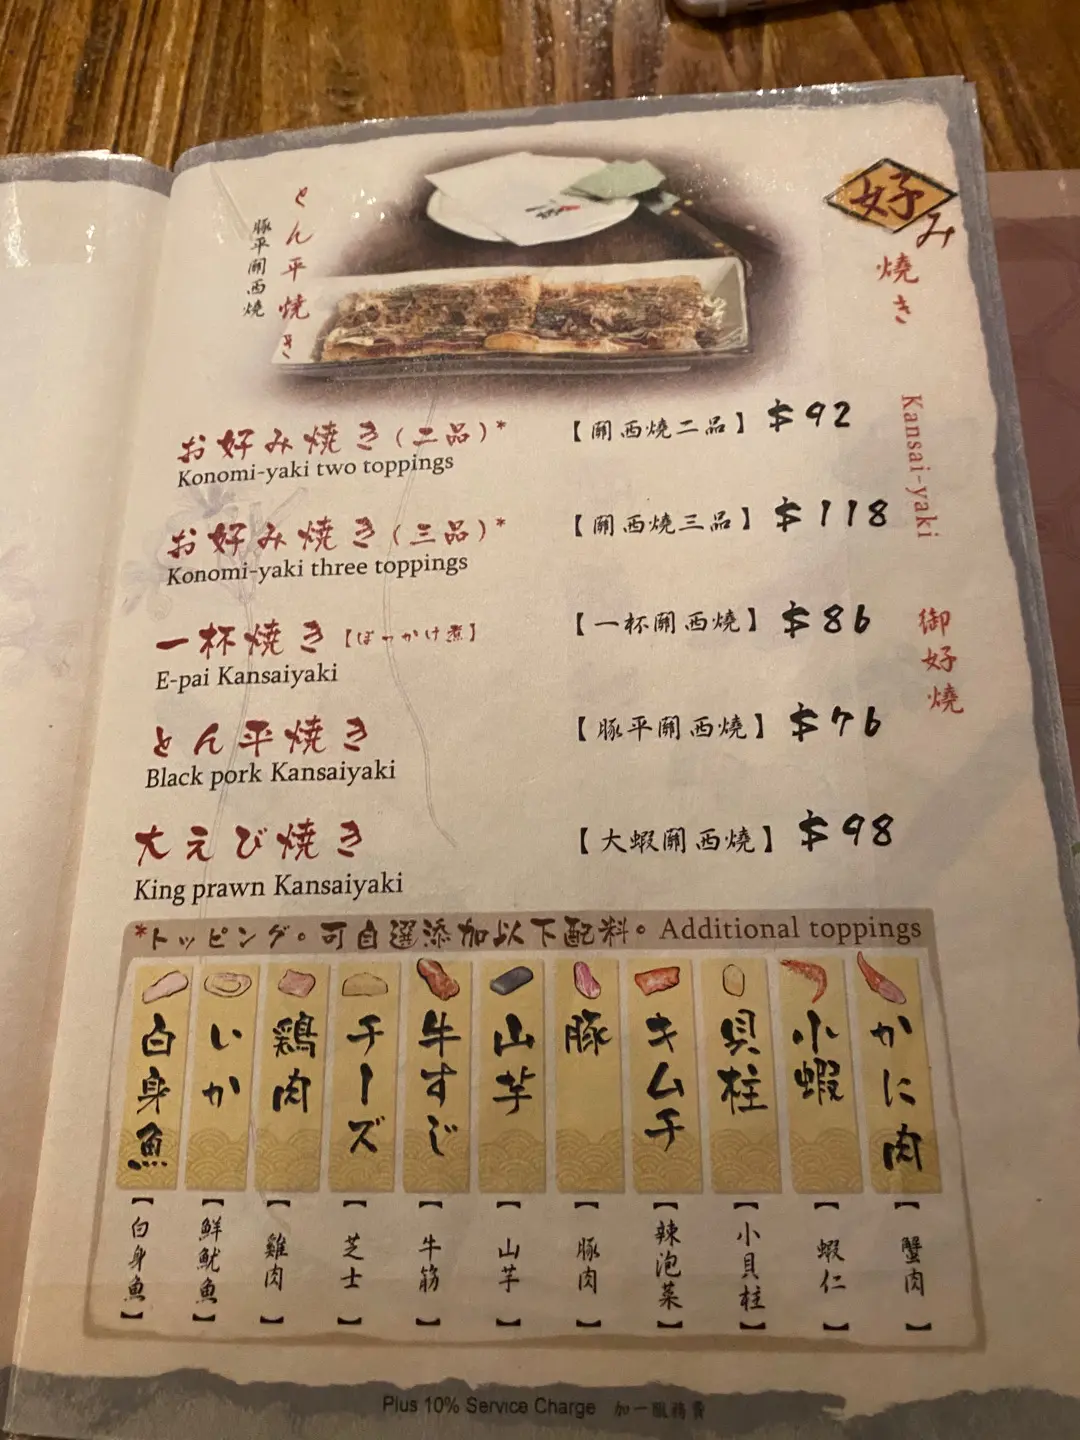 とん平焼き
豚平關西燒
好み燒き
Kansai-yaki
御好燒
お好み焼き(二品)*
【關西燒二品】 $92
Konomi-yaki two toppings
お好み焼き(三品)*
【關西燒三品】 $118
Konomi-yaki three toppings
一杯焼き【ぼっかけ煮】
【一杯關西燒】 $86
E-pai Kansaiyaki
とん平焼き
【豚平關西燒】 $76
Black pork Kansaiyaki
大えび焼き
【大蝦關西燒】 $98
King prawn Kansaiyaki
*トッピング。可自選添加以下配料。Additional toppings
白身魚
いか
鶏肉
チーズ
牛すじ
山芋
豚
キムチ
貝柱
小蝦
かに肉
【白身魚】
【鮮魷魚】
【雞肉】
【芝士】
【牛筋】
【山芋】
【豚肉】
【辣泡菜】
【小貝柱】
【蝦仁】
【蟹肉】
Plus 10% Service Charge 加一服務費